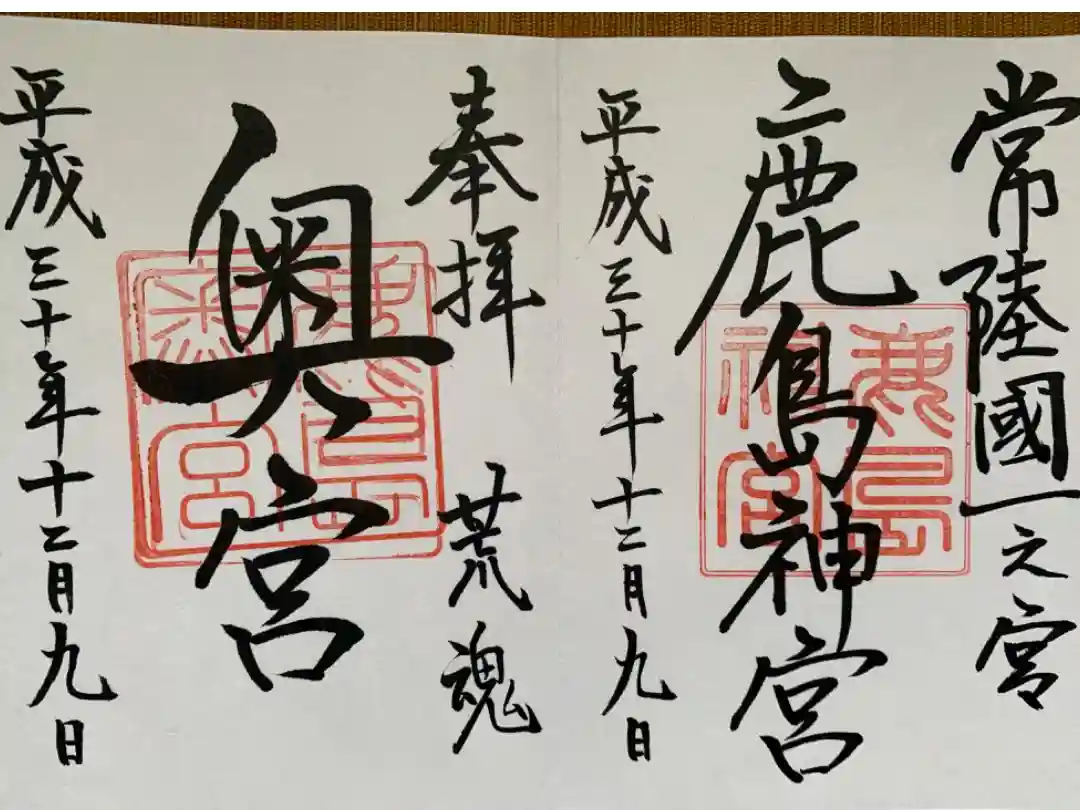 常陸國一之宮
鹿島神宮
平成三十年十二月九日
奉拝 荒魂
奥宮
平成三十年十二月九日
鹿島
神宮
鹿島
奥宮